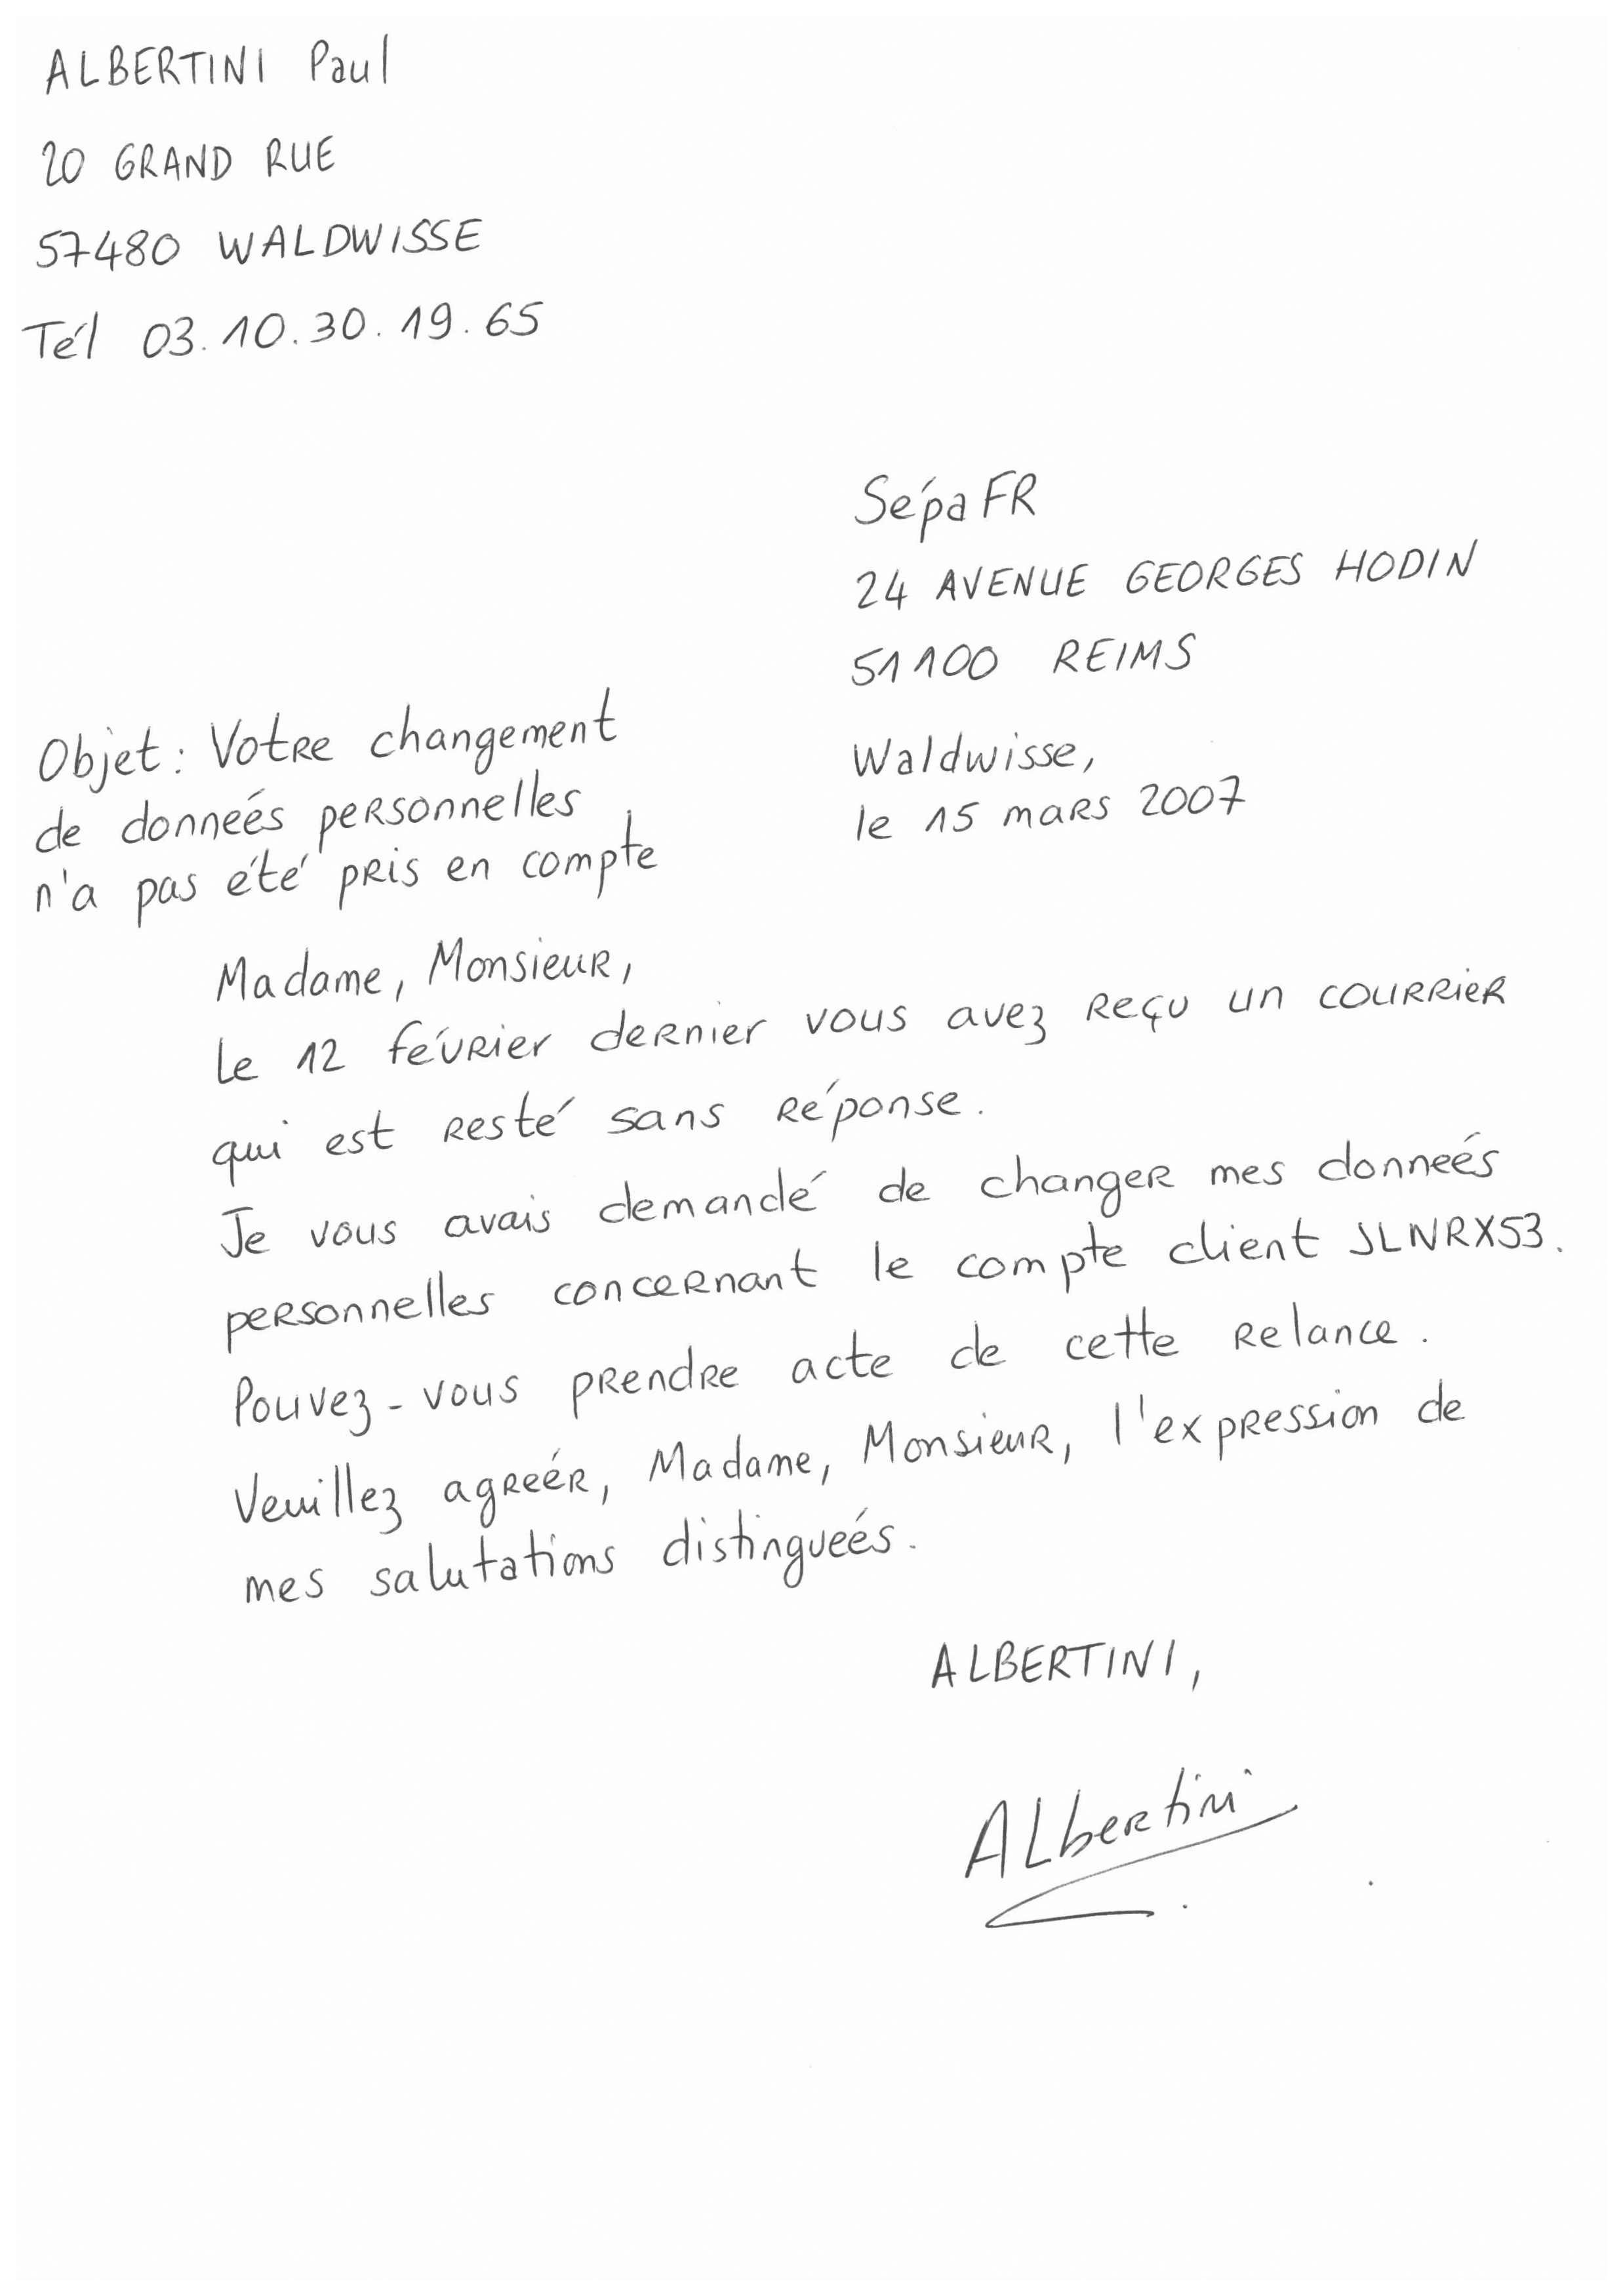 ALBERTINI Paul
20 GRAND RUE
57480 WALDWISSE
Tél 03.10.30.19.65
SépaFR
24 AVENUE GEORGES HODIN
51100 REIMS
Waldwisse,
le 15 mars 2007
Objet : Votre changement
de données personnelles
n'a pas été pris en compte
Madame, Monsieur,
Le 12 février dernier vous avez reçu un courrier
qui est resté sans réponse.
Je vous avais demandé de changer mes données
personnelles concernant le compte client JLNRX53.
Pouvez-vous prendre acte de cette relance.
Veuillez agréer, Madame, Monsieur, l'expression de
mes salutations distinguées.
ALBERTINI,
ALbertini